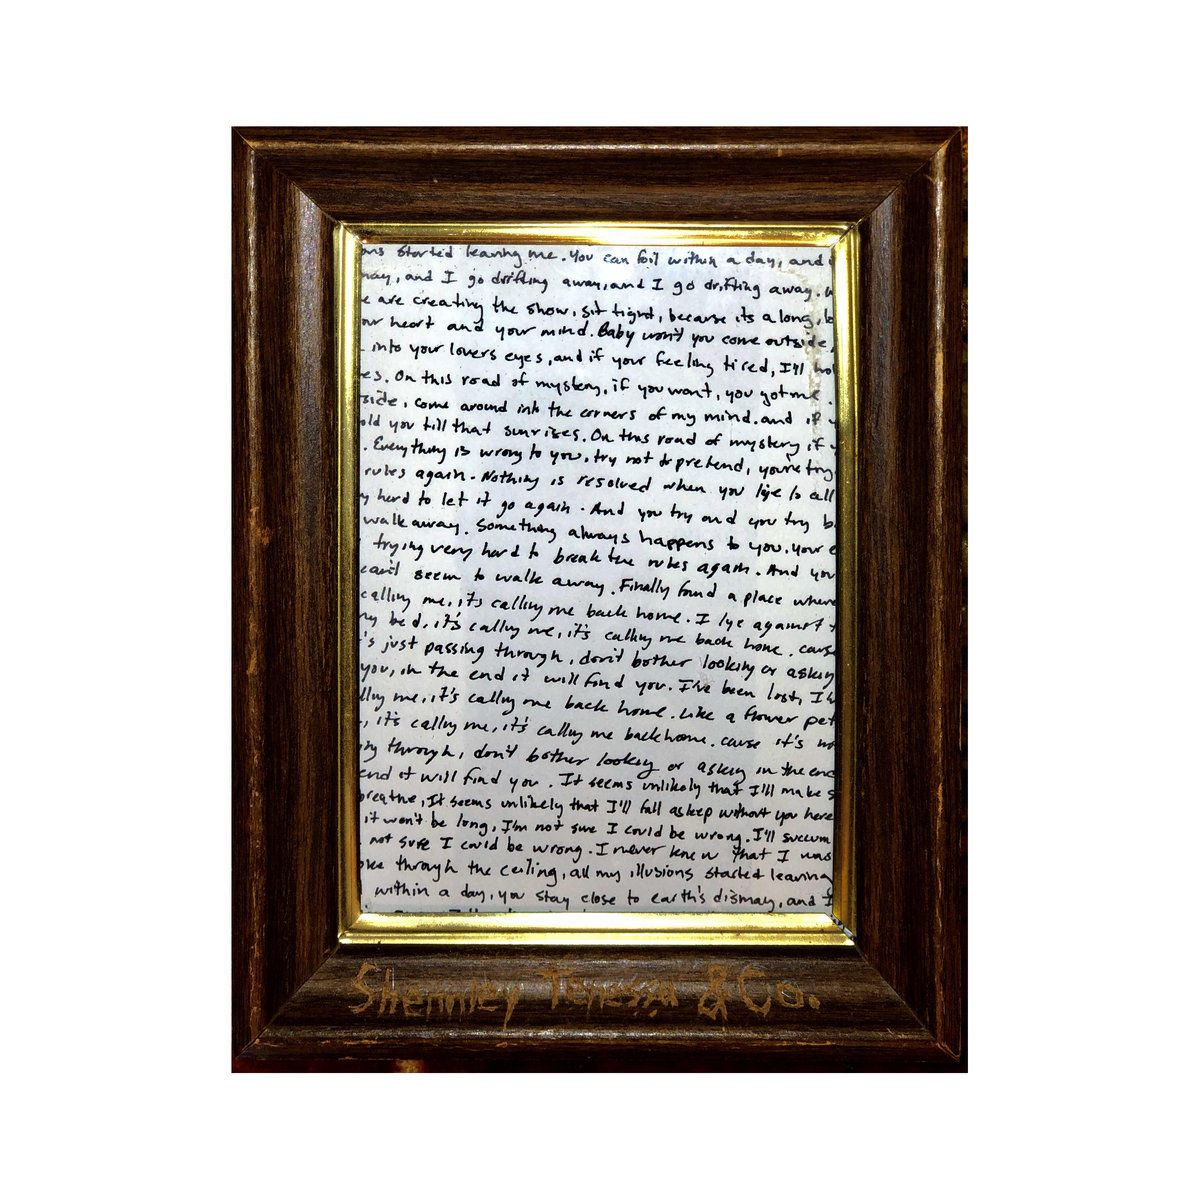 ons started leaving me. You can foil within a day, and
may, and I go drifting away, and I go drifting away.
e are creating the show, sit tight, because its a long, lo
our heart and your mind. Baby won't you come outside,
into your lovers eyes, and if your feeling tired, I'll hol
es. On this road of mystery, if you want, you got me.
side, come around into the corners of my mind. and if y
old you till that sunrises. On this road of mystery if y
. Everything is wrong to you, try not to pretend, you're try
rules again. Nothing is resolved when you lye to all
y hard to let it go again. And you try and you try b
walk away. Something always happens to you, your e
trying very hard to break the rules again. And you
can't seem to walk away. Finally found a place where
calling me, it's calling me back home. I lye against t
my bed, it's calling me, it's calling me back home. cause
's just passing through, don't bother looking or asking
you, in the end it will find you. I've been lost, I'v
lling me, it's calling me back home. Like a flower pet
., it's calling me, it's calling me back home. cause it's no
ing through, don't bother looking or asking in the end
end it will find you. It seems unlikely that I'll make s
breathe, It seems unlikely that I'll fall asleep without you here
it won't be long, I'm not sure I could be wrong. I'll succum
not sure I could be wrong. I never knew that I was
oke through the ceiling, all my illusions started leaving
within a day, you stay close to earth's dismay, and I
Shennley Tenessa & Co.